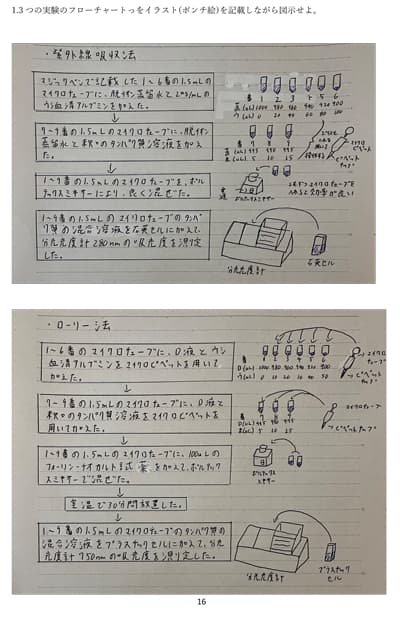 1.3 つの実験のフローチャートっをイラスト(ポンチ絵)を記載しながら図示せよ。
・紫外線吸収法
マジックペンで記載した1〜6番の1.5mLの
マイクロチューブに、脱イオン蒸留水と2mg/mLの
ウシ血清アルブミンを加えた。
番 1 2 3 4 5 6
蒸(μL) 1000 990 980 960 920 900
ウ(μL) 0 10 20 40 80 100
7〜9番の1.5mLのマイクロチューブに、脱イオン
蒸留水と秋々のタンパク質溶液を加え
た。
番 7 8 9
5 10 25
マイクロ
ピペット
ピペット
チップ
↓
1〜9番の1.5mLのマイクロチューブを、ボル
テックスミキサーにより、良く混ぜた。
ボルテックスミキサー
↓
1〜9番の1.5mLのマイクロチューブのタンパ
ク質の混合溶液を石英セルに加えて、
分光光度計で280nmの吸光度を測定
した。
分光光度計
石英セル
・ローリー法
1〜6番のマイクロチューブに、D液とウシ
血清アルブミンをマイクロピペットを用いて
加えた。
番 1 2 3 4 5 6
D(μL) 1000 990 980 960 920 900
ウ(μL) 0 10 20 40 80 100
マイクロ
ピペット
チップ
↓
7〜9番のマイクロチューブに、D液と
秋々のタンパク質溶液をマイクロピペットを
用いて加えた。
番 7 8 9
D(μL) 995 990
5 10 25
ピペットチップ
↓
1〜9番の1.5mLのマイクロチューブに、100μLの
フォーリン・チオカルト試薬を加えて、ボルテック
スミキサーで混ぜた。
ボルテックス
ミキサー
↓
室温で30分間放置した。
↓
1〜9番の1.5mLのマイクロチューブのタンパク質の
混合溶液をプラスチックセルに加えて、分光
光度計で750nmの吸光度を測定した。
分光光度計
プラスチック
セル
16